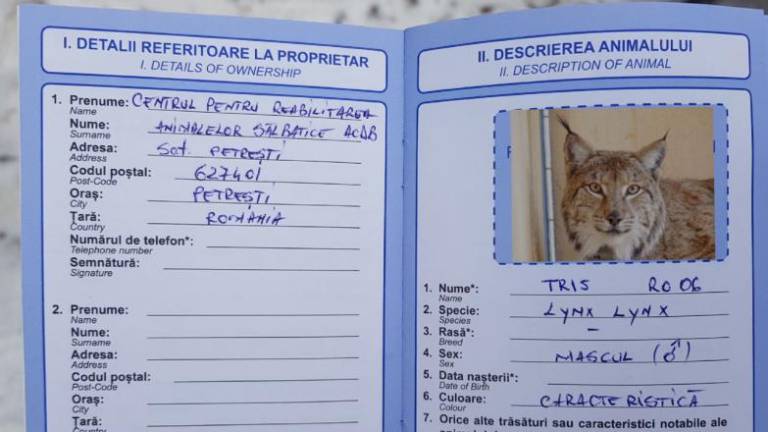 I. DETALII REFERITOARE LA PROPRIETAR
I. DETAILS OF OWNERSHIP
1. Prenume: CENTRUL PENTRU REABILITAREA
Name
Nume: ANIMALELOR SĂLBATICE ACDB
Surname
Adresa: Sat. PETREȘTI
Address
Codul poștal: 627401
Post-Code
Oraș: PETREȘTI
City
Țară: ROMÂNIA
Country
Numărul de telefon*:
Telephone number
Semnătură:
Signature
2. Prenume:
Name
Nume:
Surname
Adresa:
Address
Codul poștal:
Post-Code
Oraș:
City
Țară:
Country
II. DESCRIEREA ANIMALULUI
II. DESCRIPTION OF ANIMAL
1. Nume*: TRIS RO 06
Name
2. Specie: LYNX LYNX
Species
3. Rasă*: –
Breed
4. Sex: MASCUL (♂)
Sex
5. Data nașterii*:
Date of Birth
6. Culoare: CARACTERISTICĂ
Colour
7. Orice alte trăsături sau caracteristici notabile ale